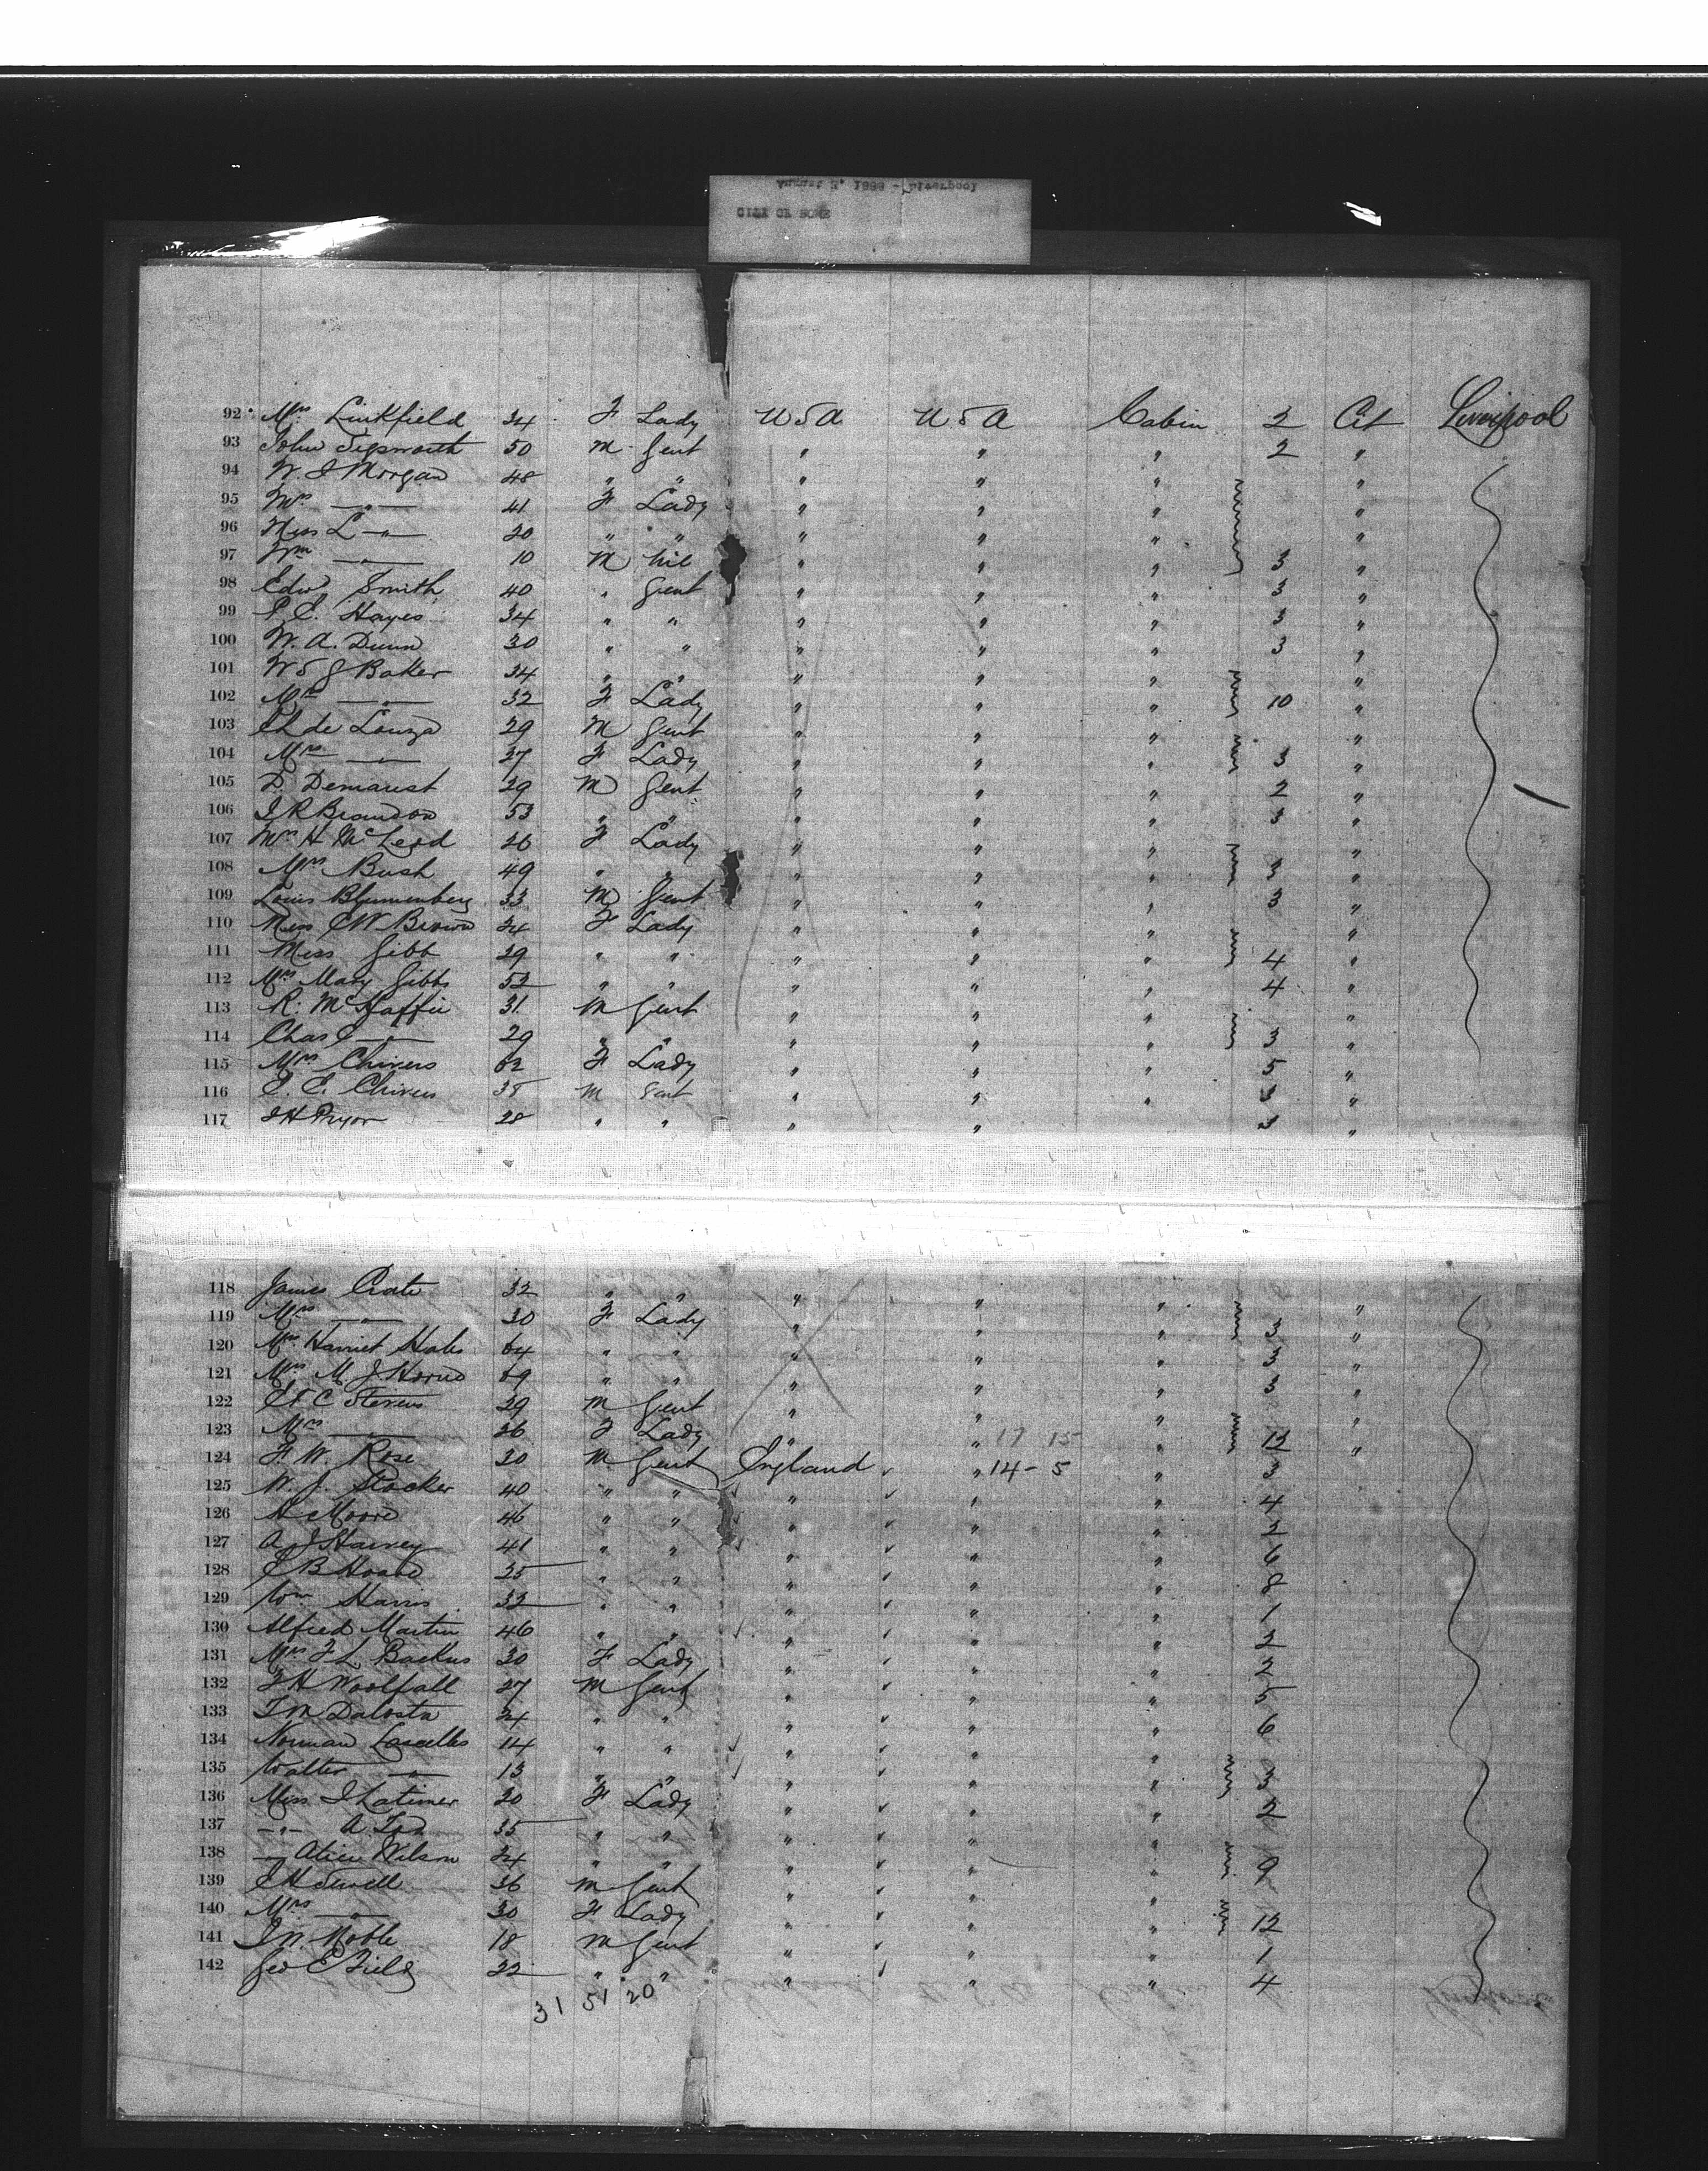 CITY OF ROME
92 Mrs Linkfield 34 F Lady USA USA Cabin 2 Cit Liverpool
93 John 50 M Gent " " " 2 "
94 W. J Morgan 48 " " " " " "
95 Mrs —"— 41 F Lady " " " "
96 Miss L —"— 20 " " " " " "
97 Wm —"— 10 M nil " " " 3 "
98 Edw Smith 40 " Gent " " " 3 "
99 P. E. Hayes 34 " " " " " 3 "
100 W. A. Dunn 30 " " " " " 3 "
101 W S G Baker 34 " " " " " "
102 Mrs —"— 32 F Lady " " " 10 "
103 de Louza 29 M Gent " " " "
104 Mrs —"— 27 F Lady " " " 3 "
105 D. Demarest 29 M Gent " " " 2 "
106 J R Brandon 53 " " " " " 3 "
107 Mrs H McLeod 26 F Lady " " " "
108 Mrs Bush 49 " " " " " 3 "
109 Louis Blumenberg 33 M Gent " " " 3 "
110 Miss E W Brown 24 F Lady " " " "
111 Miss Gibb 29 " " " " " 4 "
112 Mrs Mary Gibbs 52 " " " " " 4 "
113 R. McHaffie 31 M Gent " " " "
114 Chas J —"— 29 " " " " " 3 "
115 Mrs Chivers 62 F Lady " " " 5 "
116 E. E. Chivers 38 M Gent " " " 3 "
117 J H Pryor 28 " " " " 3 "
118 James Crate 32 " " " " " "
119 Mrs —"— 30 F Lady " " " 3 "
120 Mrs Harriet 64 " " " " " 3 "
121 Mrs M. J. Horne 69 " " " " " 3 "
122 C Stevens 29 M Gent " " " "
123 Mrs —"— 26 F Lady " " 17 15 " 12 "
124 F. W. Rose 20 M Gent England " 14-5 " 3
125 W. J. Stocker 40 " " " " " 4
126 H Moore 46 " " " " " 2
127 A J Harvey 41 " " " " " 6
128 E B Hoare 25 " " " " " 8
129 Wm Harris 32 " " " " " 1
130 Alfred Martin 46 " " " " " 2
131 Mrs F L Backus 30 F Lady " " " 2
132 F H Woolfall 27 M Gent " " " 5
133 T M DaCosta 24 " " " " " 6
134 Norman Lascelles 14 " " " " "
135 Walter —"— 13 " " " " " 3
136 Miss J Latimer 20 F Lady " " " 2
137 —"— A. 35 " " " " "
138 —"— Alice Wilson 24 " " " " " 9
139 E H Sewell 36 M Gent " " "
140 Mrs —"— 30 F Lady " " " 12
141 J N. Noble 18 M Gent " " " 1
142 Geo E Field 22 " " " " " 4
31 51 20